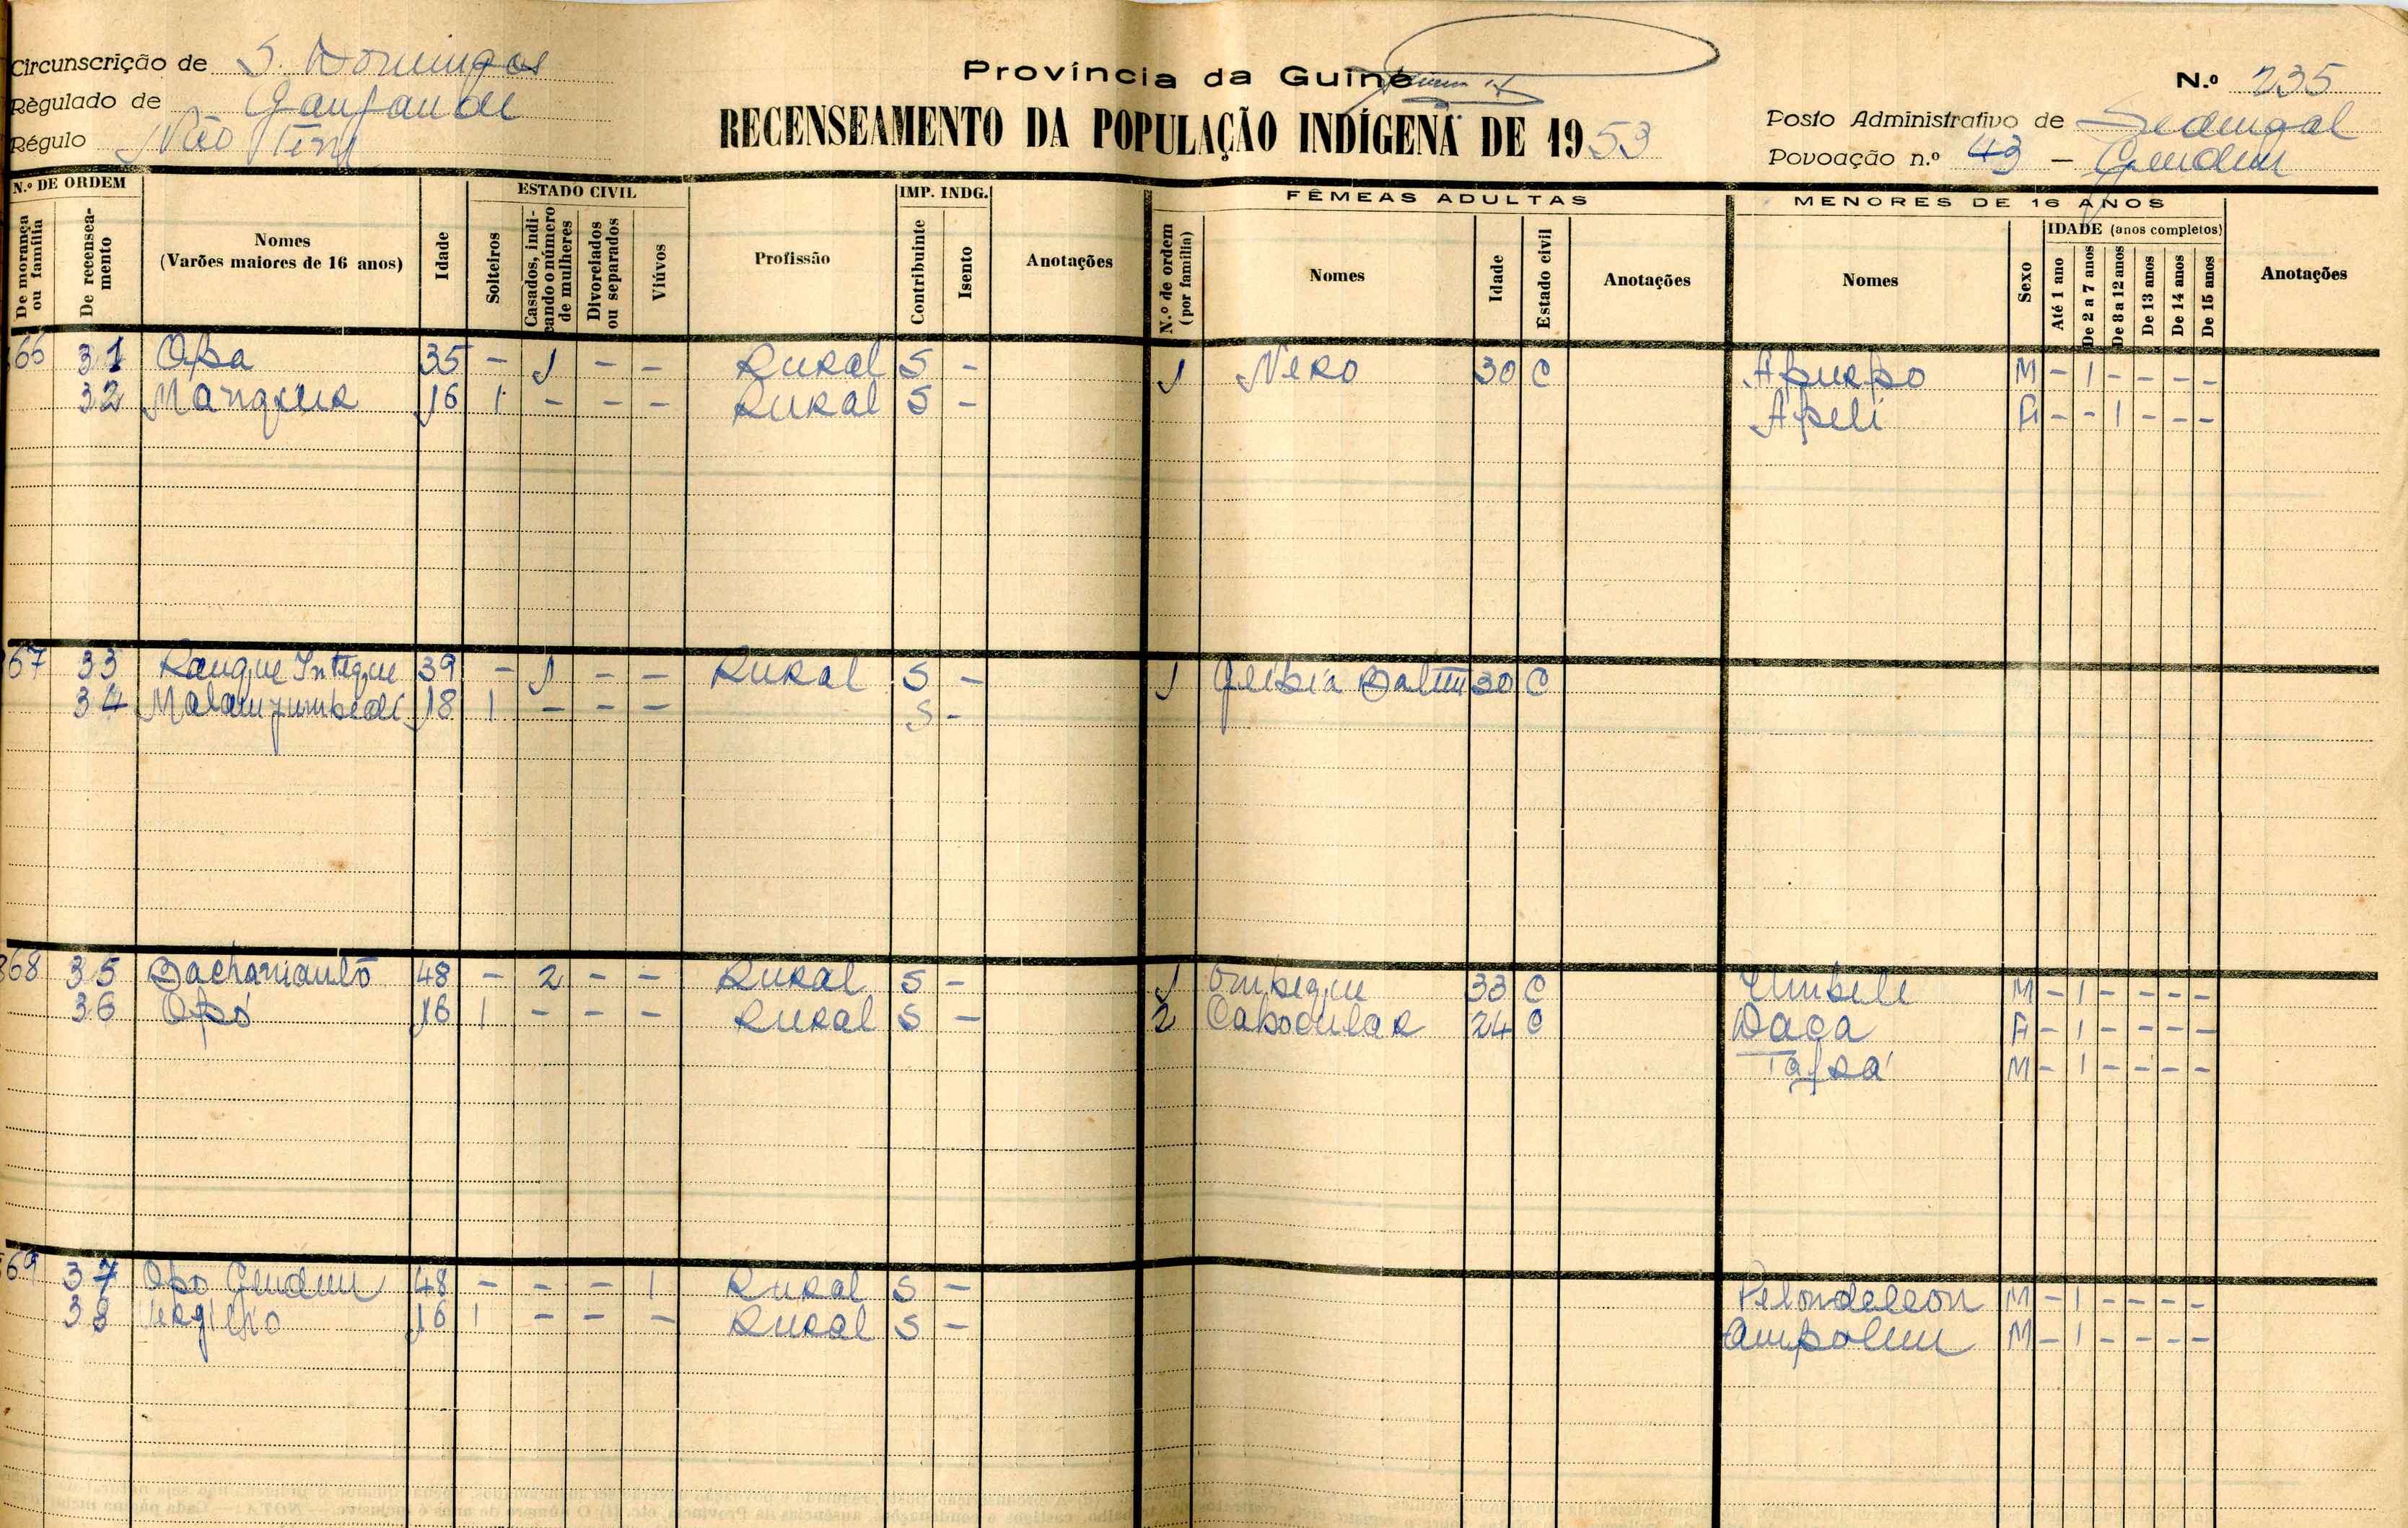 Circunscrição de S. Domingos
Règulado de
Régulo Não Tem
Província da Guiné
RECENSEAMENTO DA POPULAÇÃO INDÍGENA DE 1953
N.º 235
Posto Administrativo de Sedengal
Povoação n.º 43 - Gendem
N.º DE ORDEM
De morança ou família
De recenseamento
Nomes
(Varões maiores de 16 anos)
Idade
ESTADO CIVIL
Solteiros
Casados, indicando o número de mulheres
Divorciados ou separados
Viúvos
Profissão
IMP. INDG.
Contribuinte
Isento
Anotações
FÊMEAS ADULTAS
N.º de ordem (por família)
Nomes
Idade
Estado civil
Anotações
MENORES DE 16 ANOS
Nomes
Sexo
IDADE (anos completos)
Até 1 ano
De 2 a 7 anos
De 8 a 12 anos
De 13 anos
De 14 anos
De 15 anos
Anotações
66 31 Opa 35 - 1 - - Rural S - 1 Nero 30 C Apurpo M - 1 - - - -
32 16 1 - - - Rural S - Apeli - - 1 - - -
67 33 Rangue Integue 39 - 1 - - Rural S - 1 30 C
34 18 1 - - - S -
868 35 48 - 2 - - Rural S - 1 Ombegue 33 C Umbele M - 1 - - - -
36 Opó 16 1 - - - Rural S - 2 Cabocular 24 C Daca - 1 - - - -
Tapsa M - 1 - - - -
69 37 Opo Gendem 48 - - - 1 Rural S - Pelondeleon M - 1 - - - -
38 16 1 - - - Rural S - Ampolem M - 1 - - - -